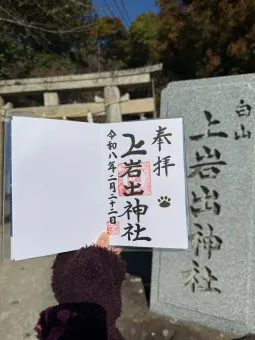 奉拝
上岩出神社
令和八年二月二十二日
白山
上岩出神社